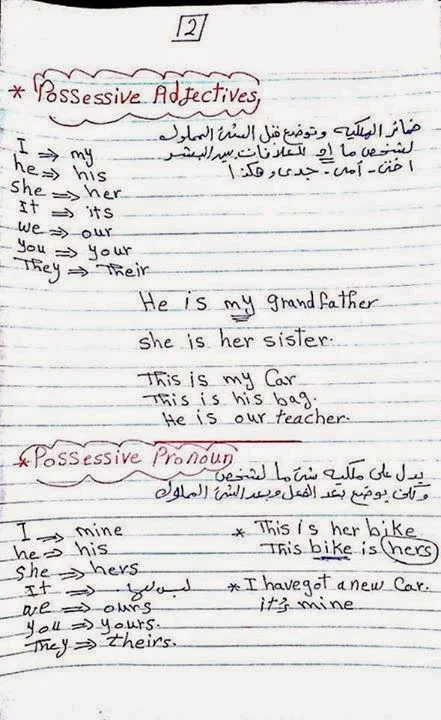 2
* Possessive Adjectives
ضمائر الملكيه وتوضع قبل الشئ المملوك
لشخص ما او للعلاقات بين البشر
اختى - أمى - جدى وهكذا
I ⇒ my
he ⇒ his
she ⇒ her
It ⇒ its
we ⇒ our
you ⇒ your
They ⇒ Their
He is my grandfather
she is her sister.
This is my Car
This is his bag.
He is our teacher.
* Possessive Pronoun
يدل على ملكيه شئ ما لشخص
ولكن يوضع بعد الفعل وبعد الشئ المملوك
I ⇒ mine
he ⇒ his
she ⇒ hers
It ⇒ ليس لها
we ⇒ ours
you ⇒ yours.
They ⇒ theirs.
* This is her bike
This bike is hers
* I have got a new Car.
it's mine